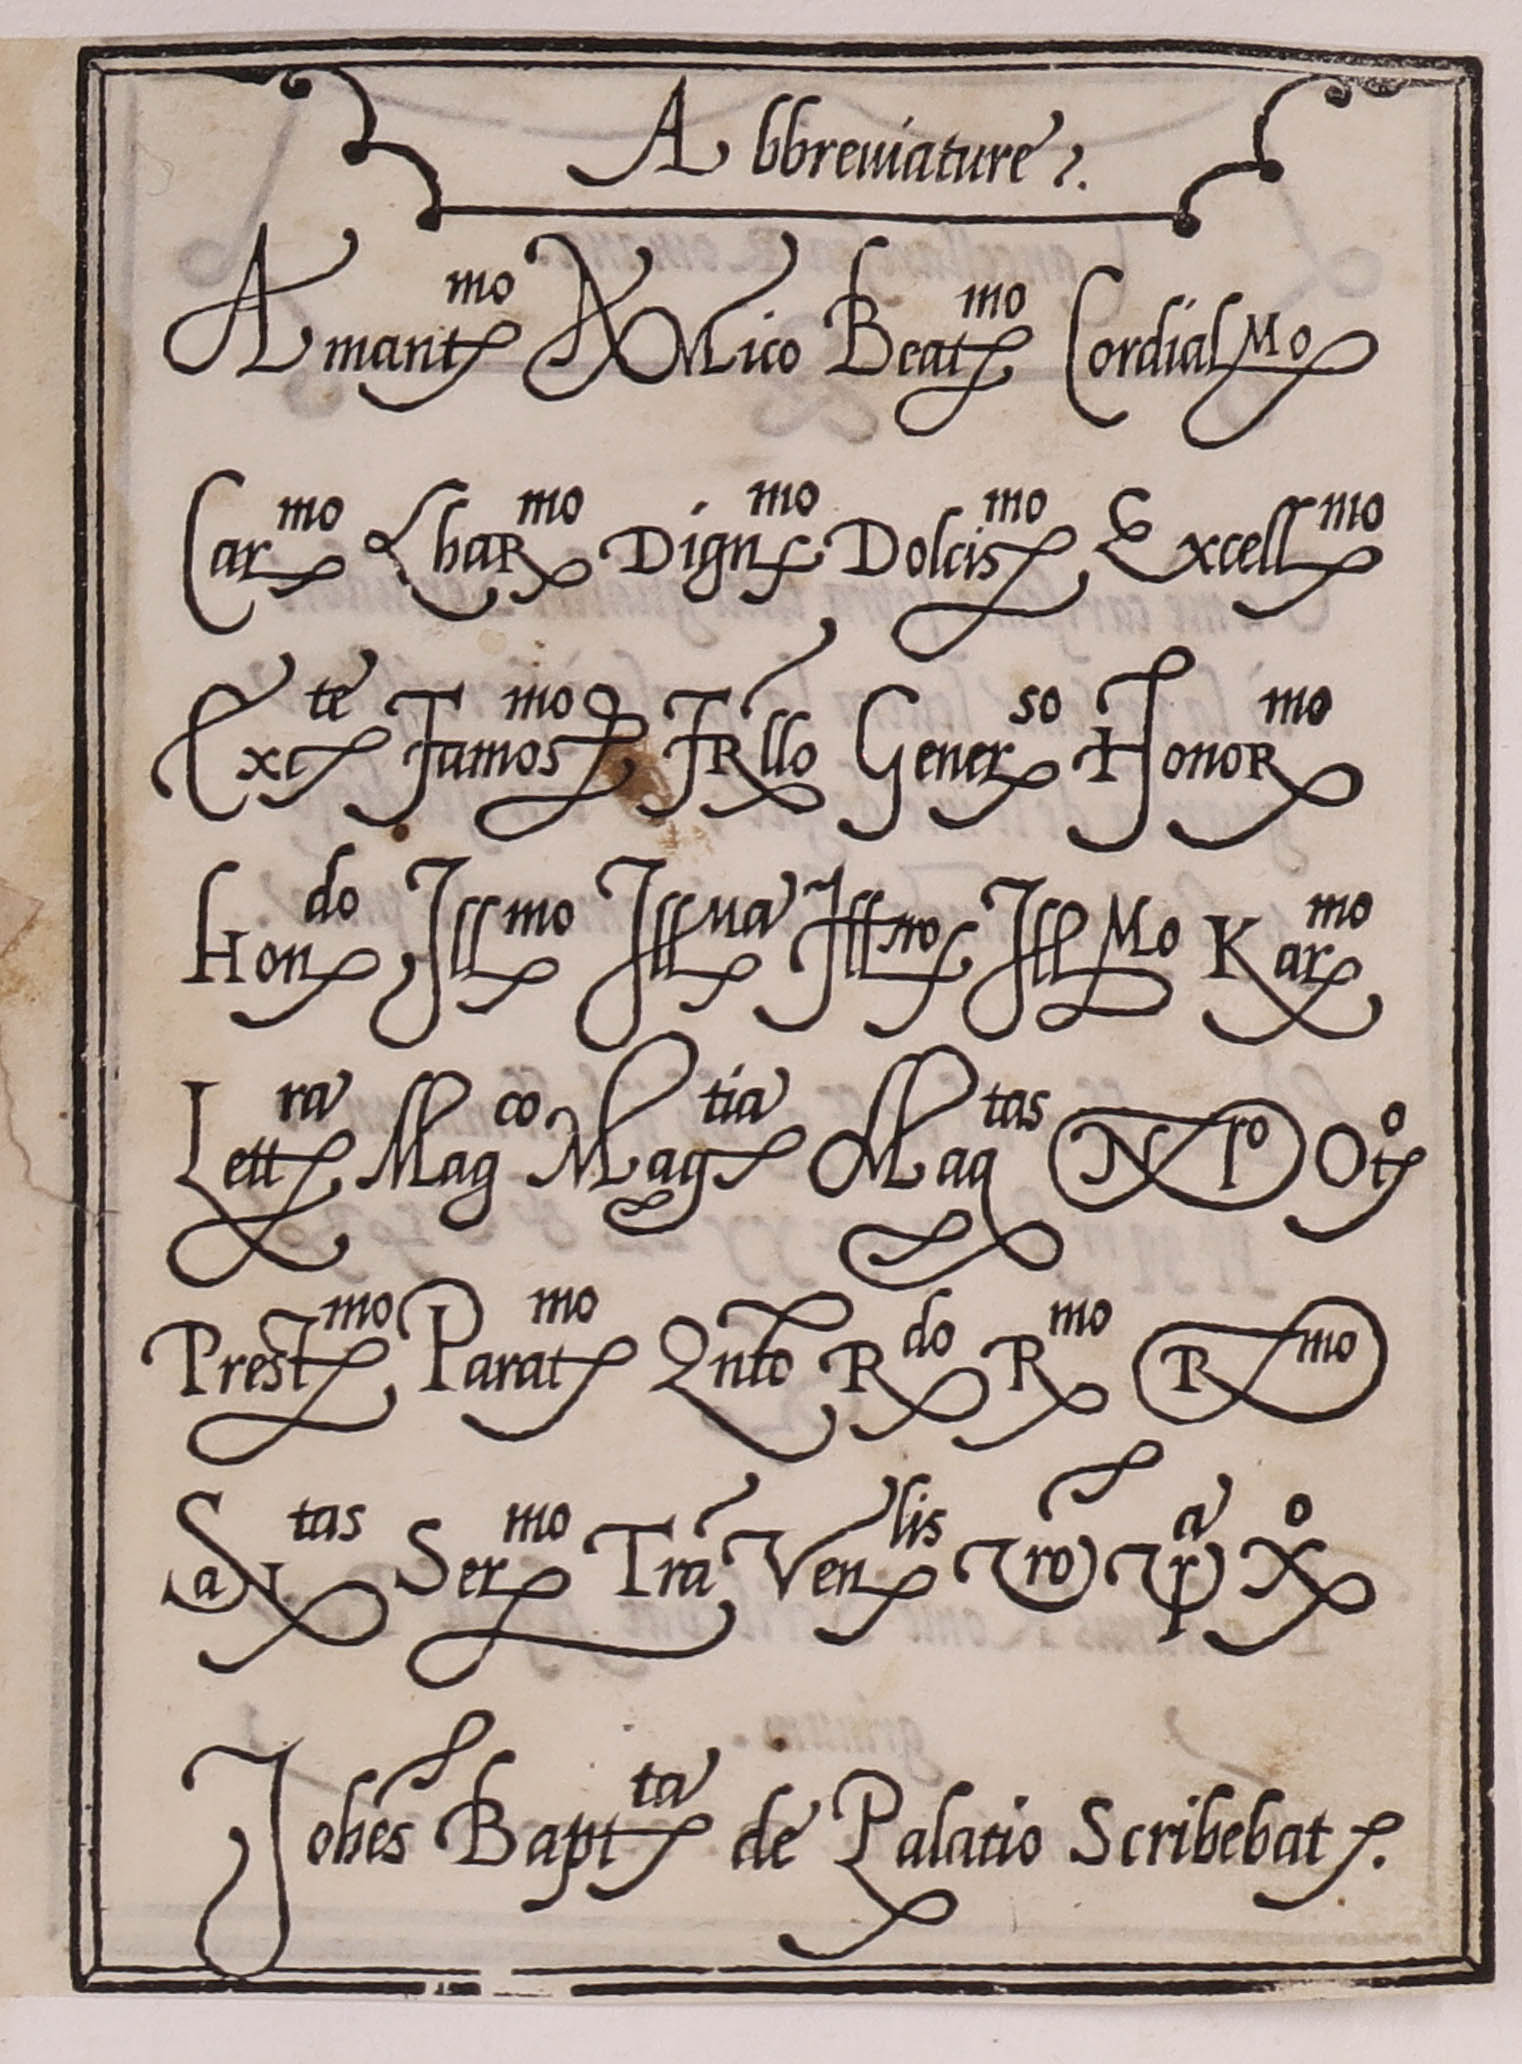 Abbreuiature.
Amantmo AMico Beatmo CordialMo
Carmo Charmo Dignmo Dolcismo Excellmo
Exte Famosmo FRllo Generso Honormo
Hondo Illmo Jlluo IllMo Karmo
Lettra Magco Magtia Magtas Nro Oto
Prestmo Paratmo Qnto Rdo Rmo Rmo
Santas Sermo Tra Venlis Vro Vra Xo
Johes Baptta de Palatio Scribebat.